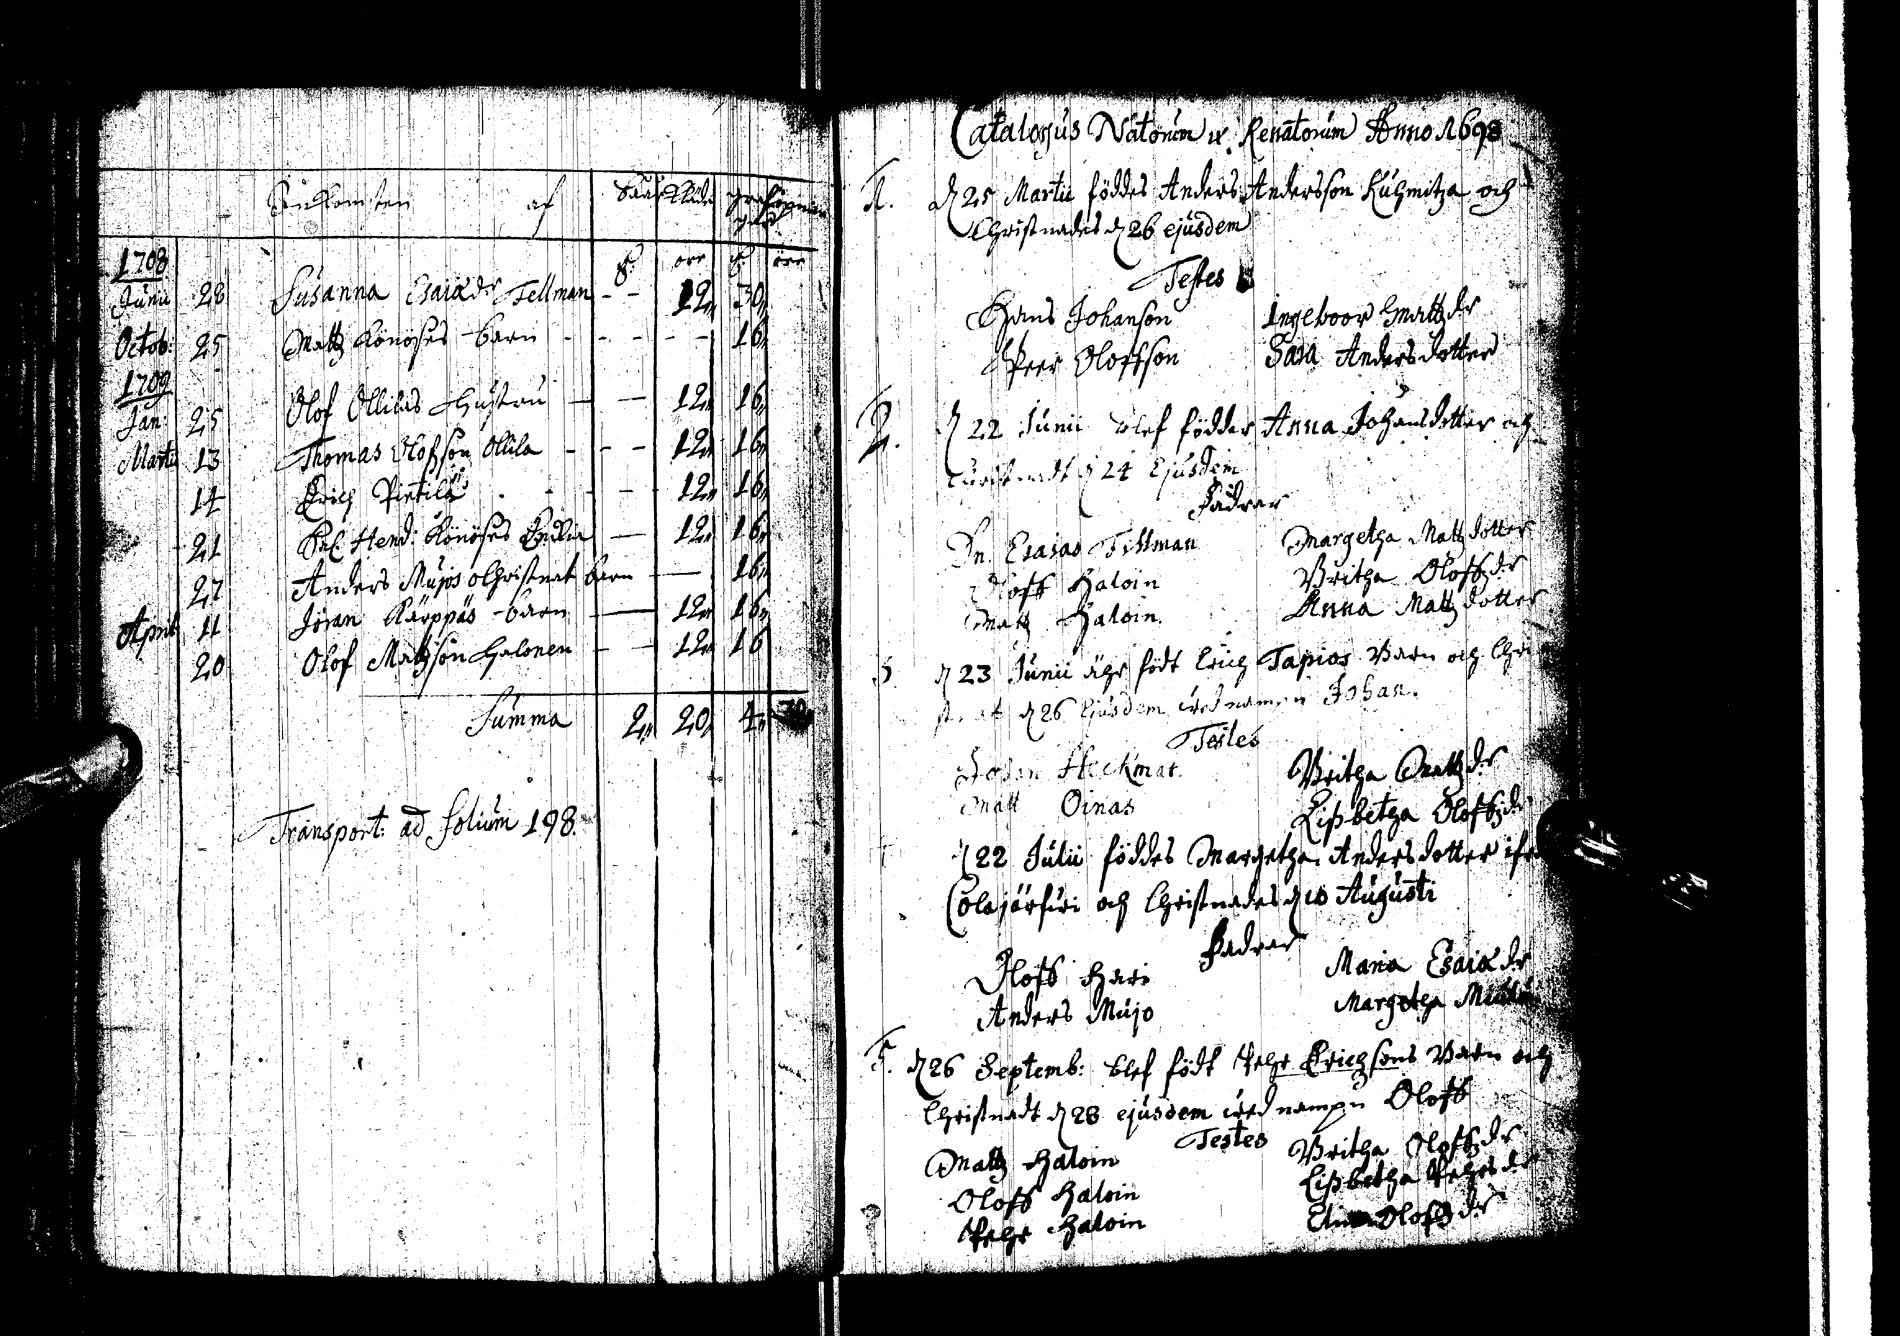 Inkomsten af
1708
öre öre
Junii 28 Susanna Esaiædr Tellman - - 12„ 30„
Octob: 25 Matz Könöses barn - - - - - 16„
1709
Jan: 25 Olof Ollilas Hustru - - 12„ 16„
Martii 13 Thomas Olofson Ollila - - - 12„ 16„
14 Erich Pietilä - - - - 12„ 16„
21 Sal. Hend: Könöses Enkia - 12„ 16„
27 Anders Mujos oChristnat barn - 16„
April 11 Jöran Kärppäs barn - 12„ 16„
20 Olof Matzson Halonen - - 12„ 16
Summa 2„ 20„ 4„
Transport: ad folium 198.
Catalogus Natorum & Renatorum Anno 1698
1. d 25 Martii föddes Anders Andersson Kuhmitza och
Christnades d 26 ejusdem
Testes
Hans Johanson Ingeboor Mattzdr
Peer Oloffson Sara Andersdotter
2. d 22 Junii blef födder Anna Johansdotter och
Christnadt d 24 Ejusdem
Fadrar
Dn. Esaias Tellman Margetha Matzdotter
Oloff Haloin Britha Oloffzdr
Matz Haloin Anna Matzdotter
3 d 23 Junii ähr födt Erich Tapios Barn och Chri
stnat d 26 Ejusdem wed nampn Johan.
Testes
Johan Heckman Britha Mattzdr
Matt Oinas Lissbetha Oloffzdr
d 22 Julii föddes Margetha Andersdotter ifrå
Colajärfwi och Christnades d 10 Augusti
Fadrar
Oloff Hari Maria Esaiædr
Anders Mujo Margetha
5. d 26 Septemb: blef födt Pehr Erichsons Barn och
Christnadt d 28 ejusdem wed nampn Oloff
Testes
Matz Haloin Britha Oloffzdr
Oloff Haloin Lissbetha Pehrsdr
Pehr Haloin Olofzdr